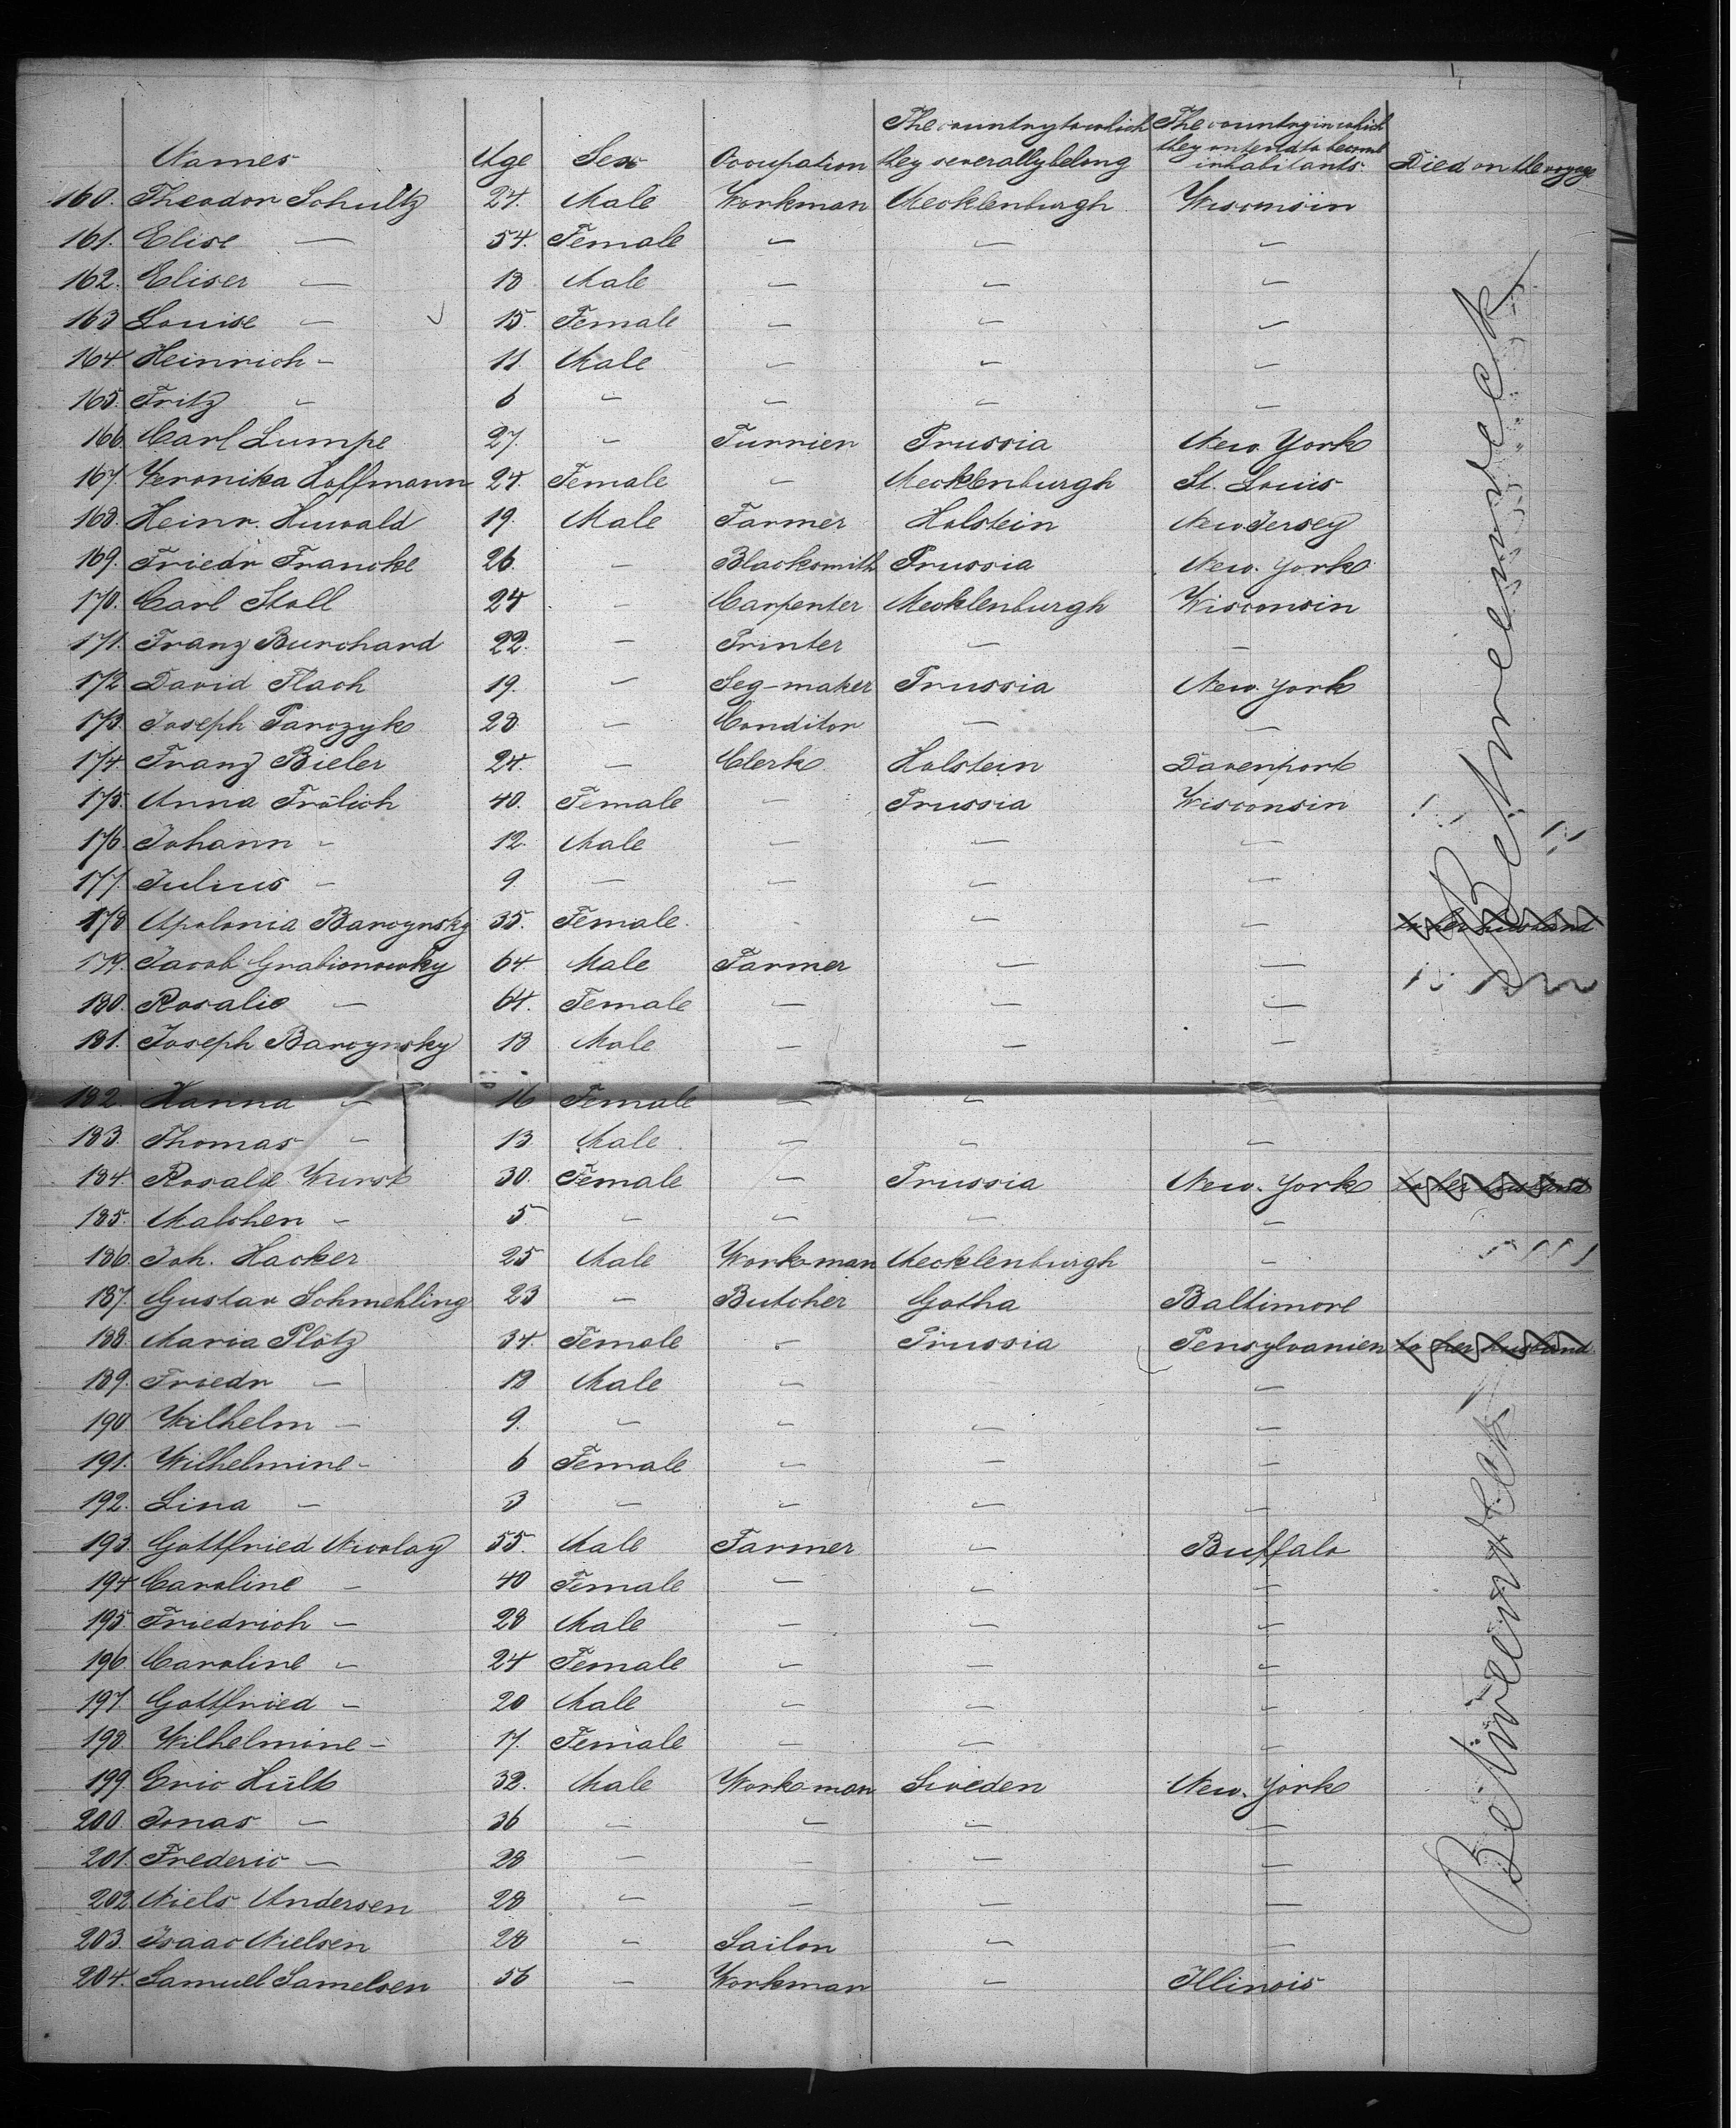 Names Age Sex Occupation The country to which they severally belong The country in which they intend to become inhabitants. Died on the voyage
160. Theodor Schultz 24. Male Workman Mecklenburgh Wisconsin
161. Elise — 54. Female — — —
162. Eliser — 18 Male — — —
163 Louise — 15. Female — — —
164. Heinrich — 11. Male — — —
165. Fritz — 6 — — — —
166. Carl Lumpe 27. — Furrier Prussia New York
167. Veronika Hoffmann 24. Female — Mecklenburgh St. Louis
168. Heinr. Huwald 19. Male Farmer Holstein New Jersey
169. Friedr Francke 26. — Blacksmith Prussia New York
170. Carl Stoll 24 — Carpenter Mecklenburgh Wisconsin
171. Franz Burchard 22. — Printer — —
172 David Flach 19. — Seg-maker Prussia New York
173. Joseph Parczyk 28 — Conditor — —
174. Franz Bieler 24. — Clerk Holstein Davenport
175. Anna Frölich 40. Female — Prussia Wisconsin
176. Johann — 12. Male — — —
177. Julius — 9 — — — —
178 Apolonia Barcynsky 35. Female. — — — to her husband
179. Jacob Grabionowky 64 Male Farmer — —
180. Rosalie — 64. Female — — —
181. Joseph Barcynsky 18 Male — — —
182. Hanna — 16 Female — —
183. Thomas — 13. Male — — —
184. Rosalie Wurst 30. Female — Prussia New York to her husband
185. Malchen — 5 — — — —
186. Joh. Hacker 25 Male Workman Mecklenburgh —
187. Gustav Schmehling 23 — Butcher Gotha Baltimore
188. Maria Plötz 34. Female — Prussia Pensylvanien to her husband
189. Friedr — 12 Male — —
190 Wilhelm — 9. — — — —
191. Wilhelmine — 6 Female — — —
192. Lina — 3 — — — —
193. Gottfried Nicolay 55. Male Farmer — Buffalo
194 Caroline — 40 Female — — —
195. Friedrich — 28 Male — — —
196. Caroline — 24 Female — — —
197. Gottfried — 20 Male — — —
198. Wilhelmine — 17. Female — — —
199. Eric Hült 32. Male Workman Sweden New York
200. Jonas — 36 — — — —
201. Frederic — 28 — — — —
202. Niels Andersen 28 — — — —
203. Isaac Nielsen 28 — Sailor — —
204. Samuel Samelsen 56 — Workman — Illinois